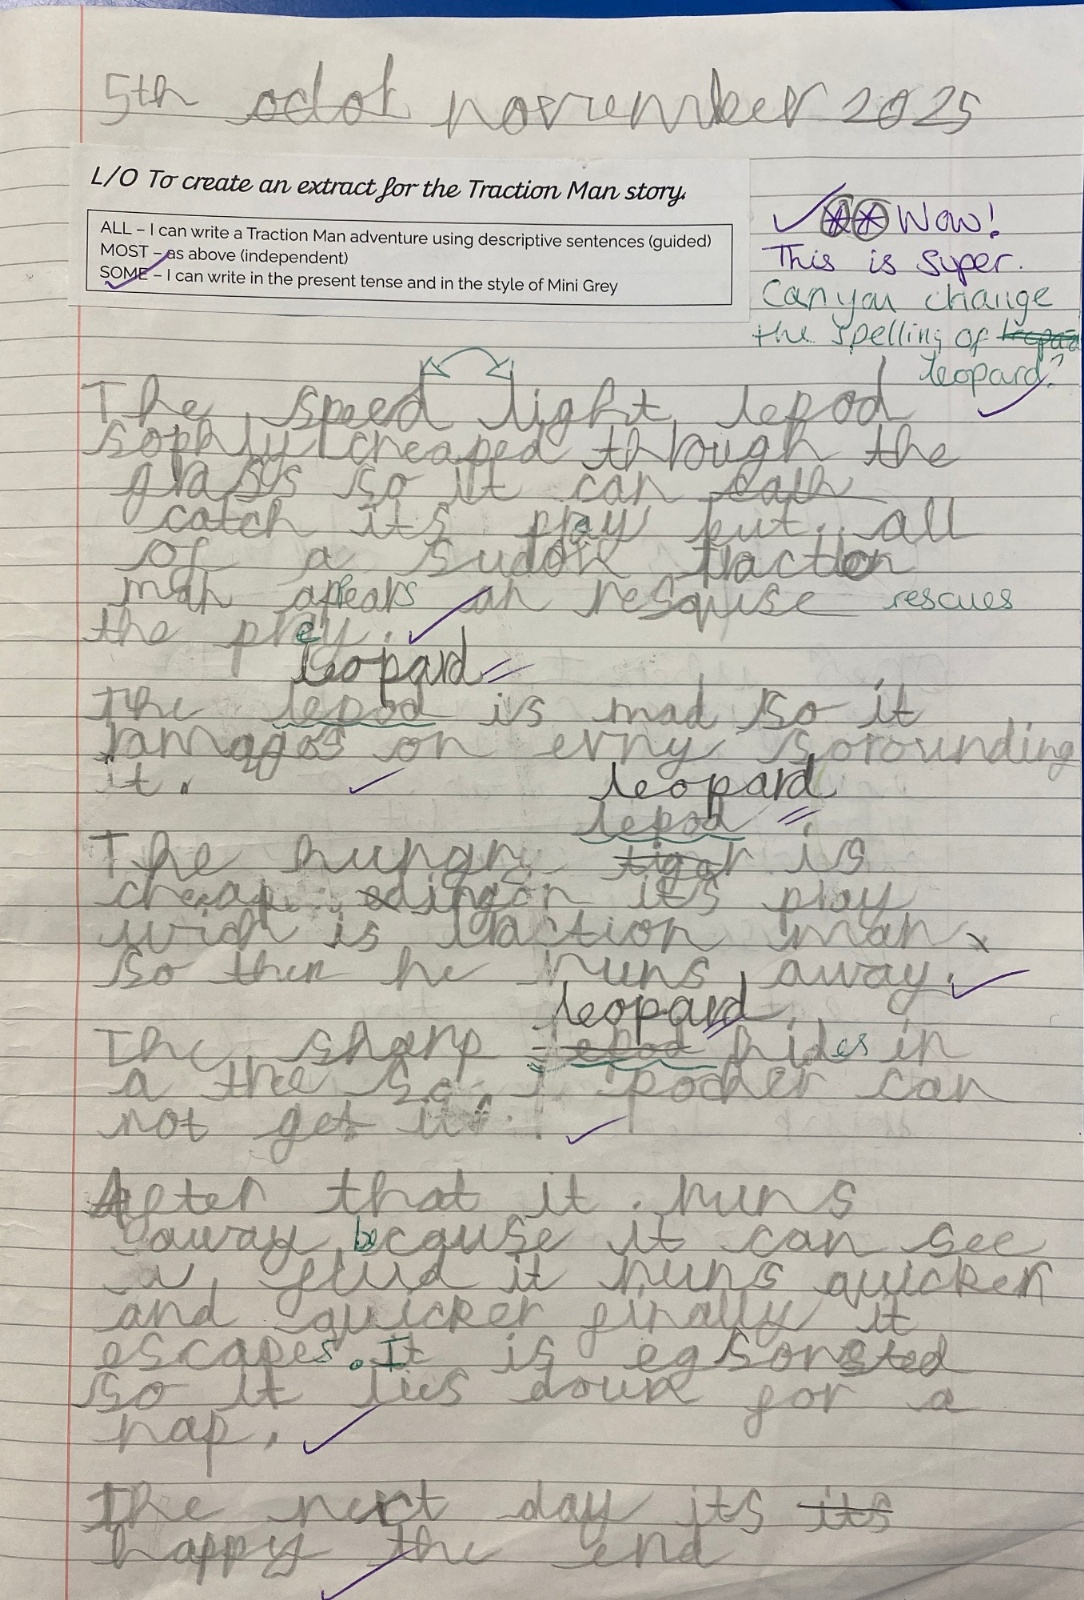 5th november 2025
L/O To create an extract for the Traction Man story.
ALL – I can write a Traction Man adventure using descriptive sentences (guided)
MOST – as above (independent)
SOME – I can write in the present tense and in the style of Mini Grey
Wow!
This is super.
Can you change
the spelling of
leopard?
The speed light lepod
sophly creaped through the
glass so it can
catch its play but all
of a sudon traction
man appears an resquise rescues
the prey.
leopard
The lepod is mad so it
ramages on evrny sorounding
it.
leopard
lepod
The hungry tiger is
cheap edingon its play
wich is traction man
so then he runs away.
leopard
The sharp lepod hides in
a thee so pocher can
not get it.
After that it runs
away because it can see
a it runs quicker
and quicker finally it
escapes. It is egsorsted
so it lies down for a
nap.
The next day its its
happy the end